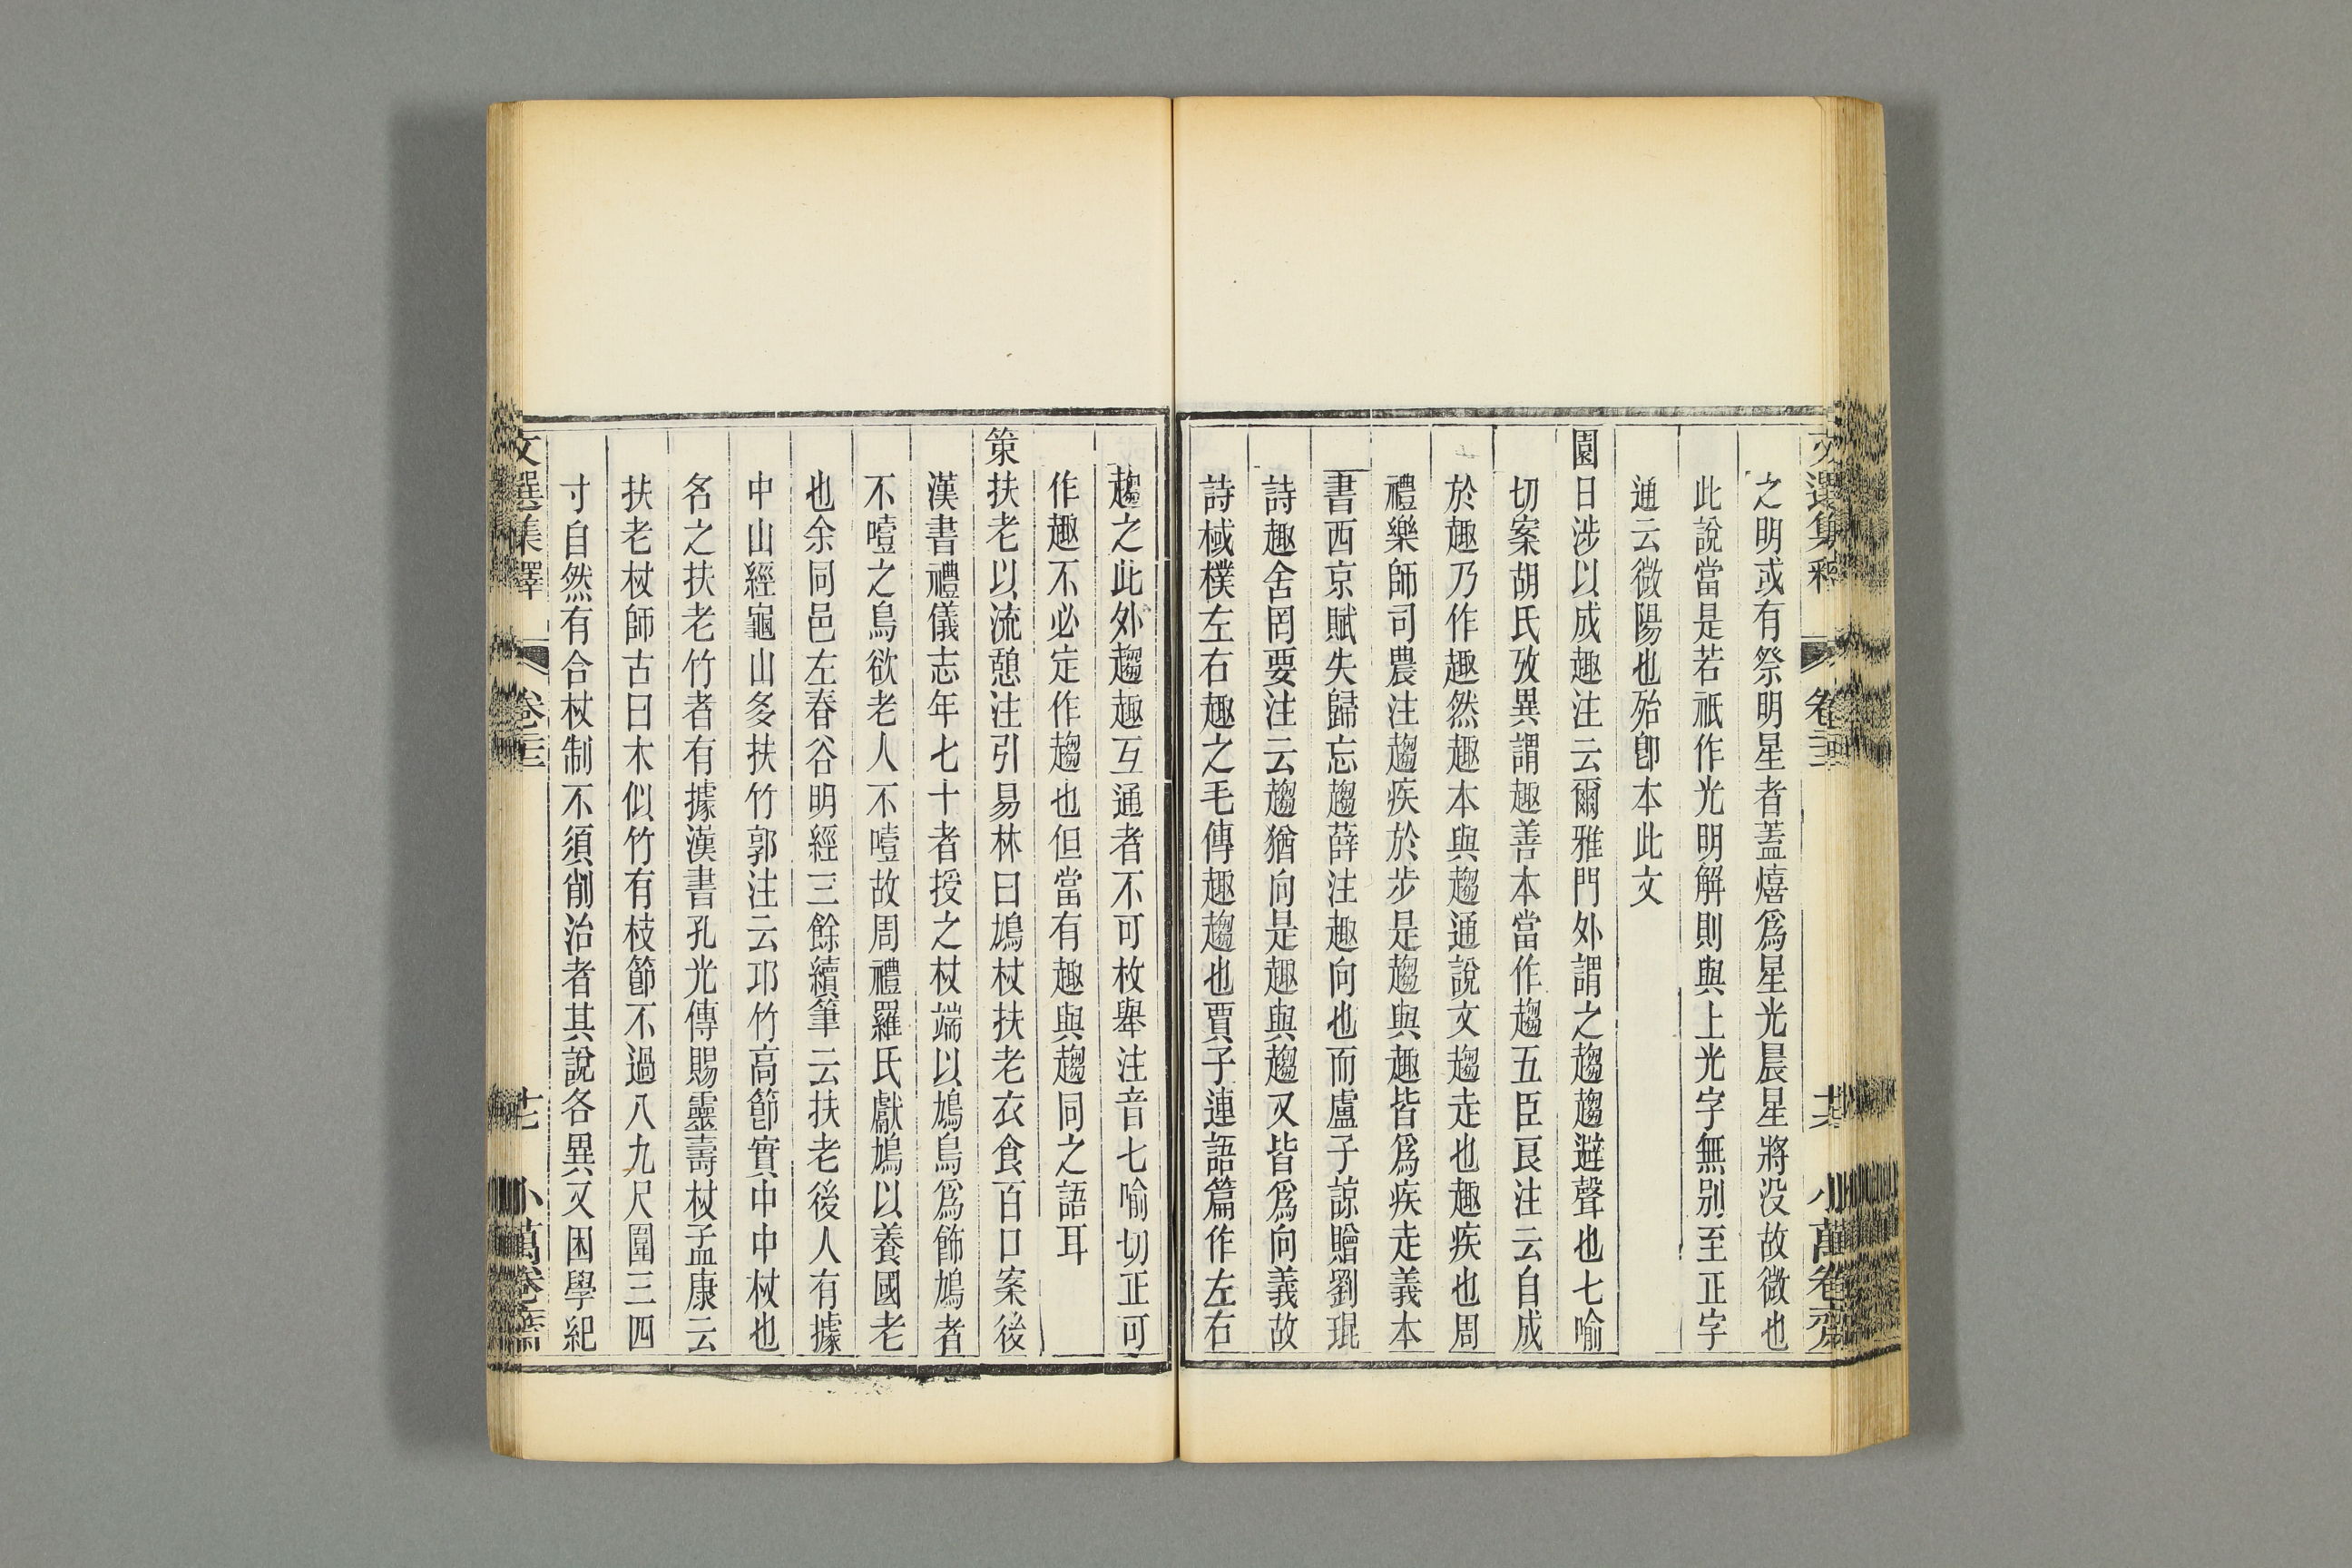 之明或有祭明星者蓋熺爲星光晨星將没故微也
此說當是若祇作光明解則與上光字無别至正字
通云微陽也殆卽本此文
園日涉以成趣注云爾雅門外謂之趨趨避聲也七喻
切案胡氏攷異謂趣善本當作趨五臣良注云自成
於趣乃作趣然趣本與趨通說文趨走也趣疾也周
禮樂師司農注趨疾於步是趨與趣皆爲疾走義本
書西京賦失歸忘趨薛注趣向也而盧子諒贈劉琨
詩趣舍罔要注云趨猶向是趣與趨又皆爲向義故
詩棫樸左右趣之毛傳趣趨也賈子連語篇作左右
趨之此外趨趣互通者不可枚舉注音七喻切正可
作趣不必定作趨也但當有趣與趨同之語耳
策扶老以流憩注引易林曰鳩杖扶老衣食百口案後
漢書禮儀志年七十者授之杖端以鳩鳥爲飾鳩者
不噎之鳥欲老人不噎故周禮羅氏獻鳩以養國老
也余同邑左春谷明經三餘續筆云扶老後人有據
中山經龜山多扶竹郭注云邛竹高節實中中杖也
名之扶老竹者有據漢書孔光傳賜靈壽杖孟康云
扶老杖師古曰木似竹有枝節不過八九尺圍三四
寸自然有合杖制不須削治者其說各異又困學紀
文選集釋
卷二三
廿七
小萬卷齋